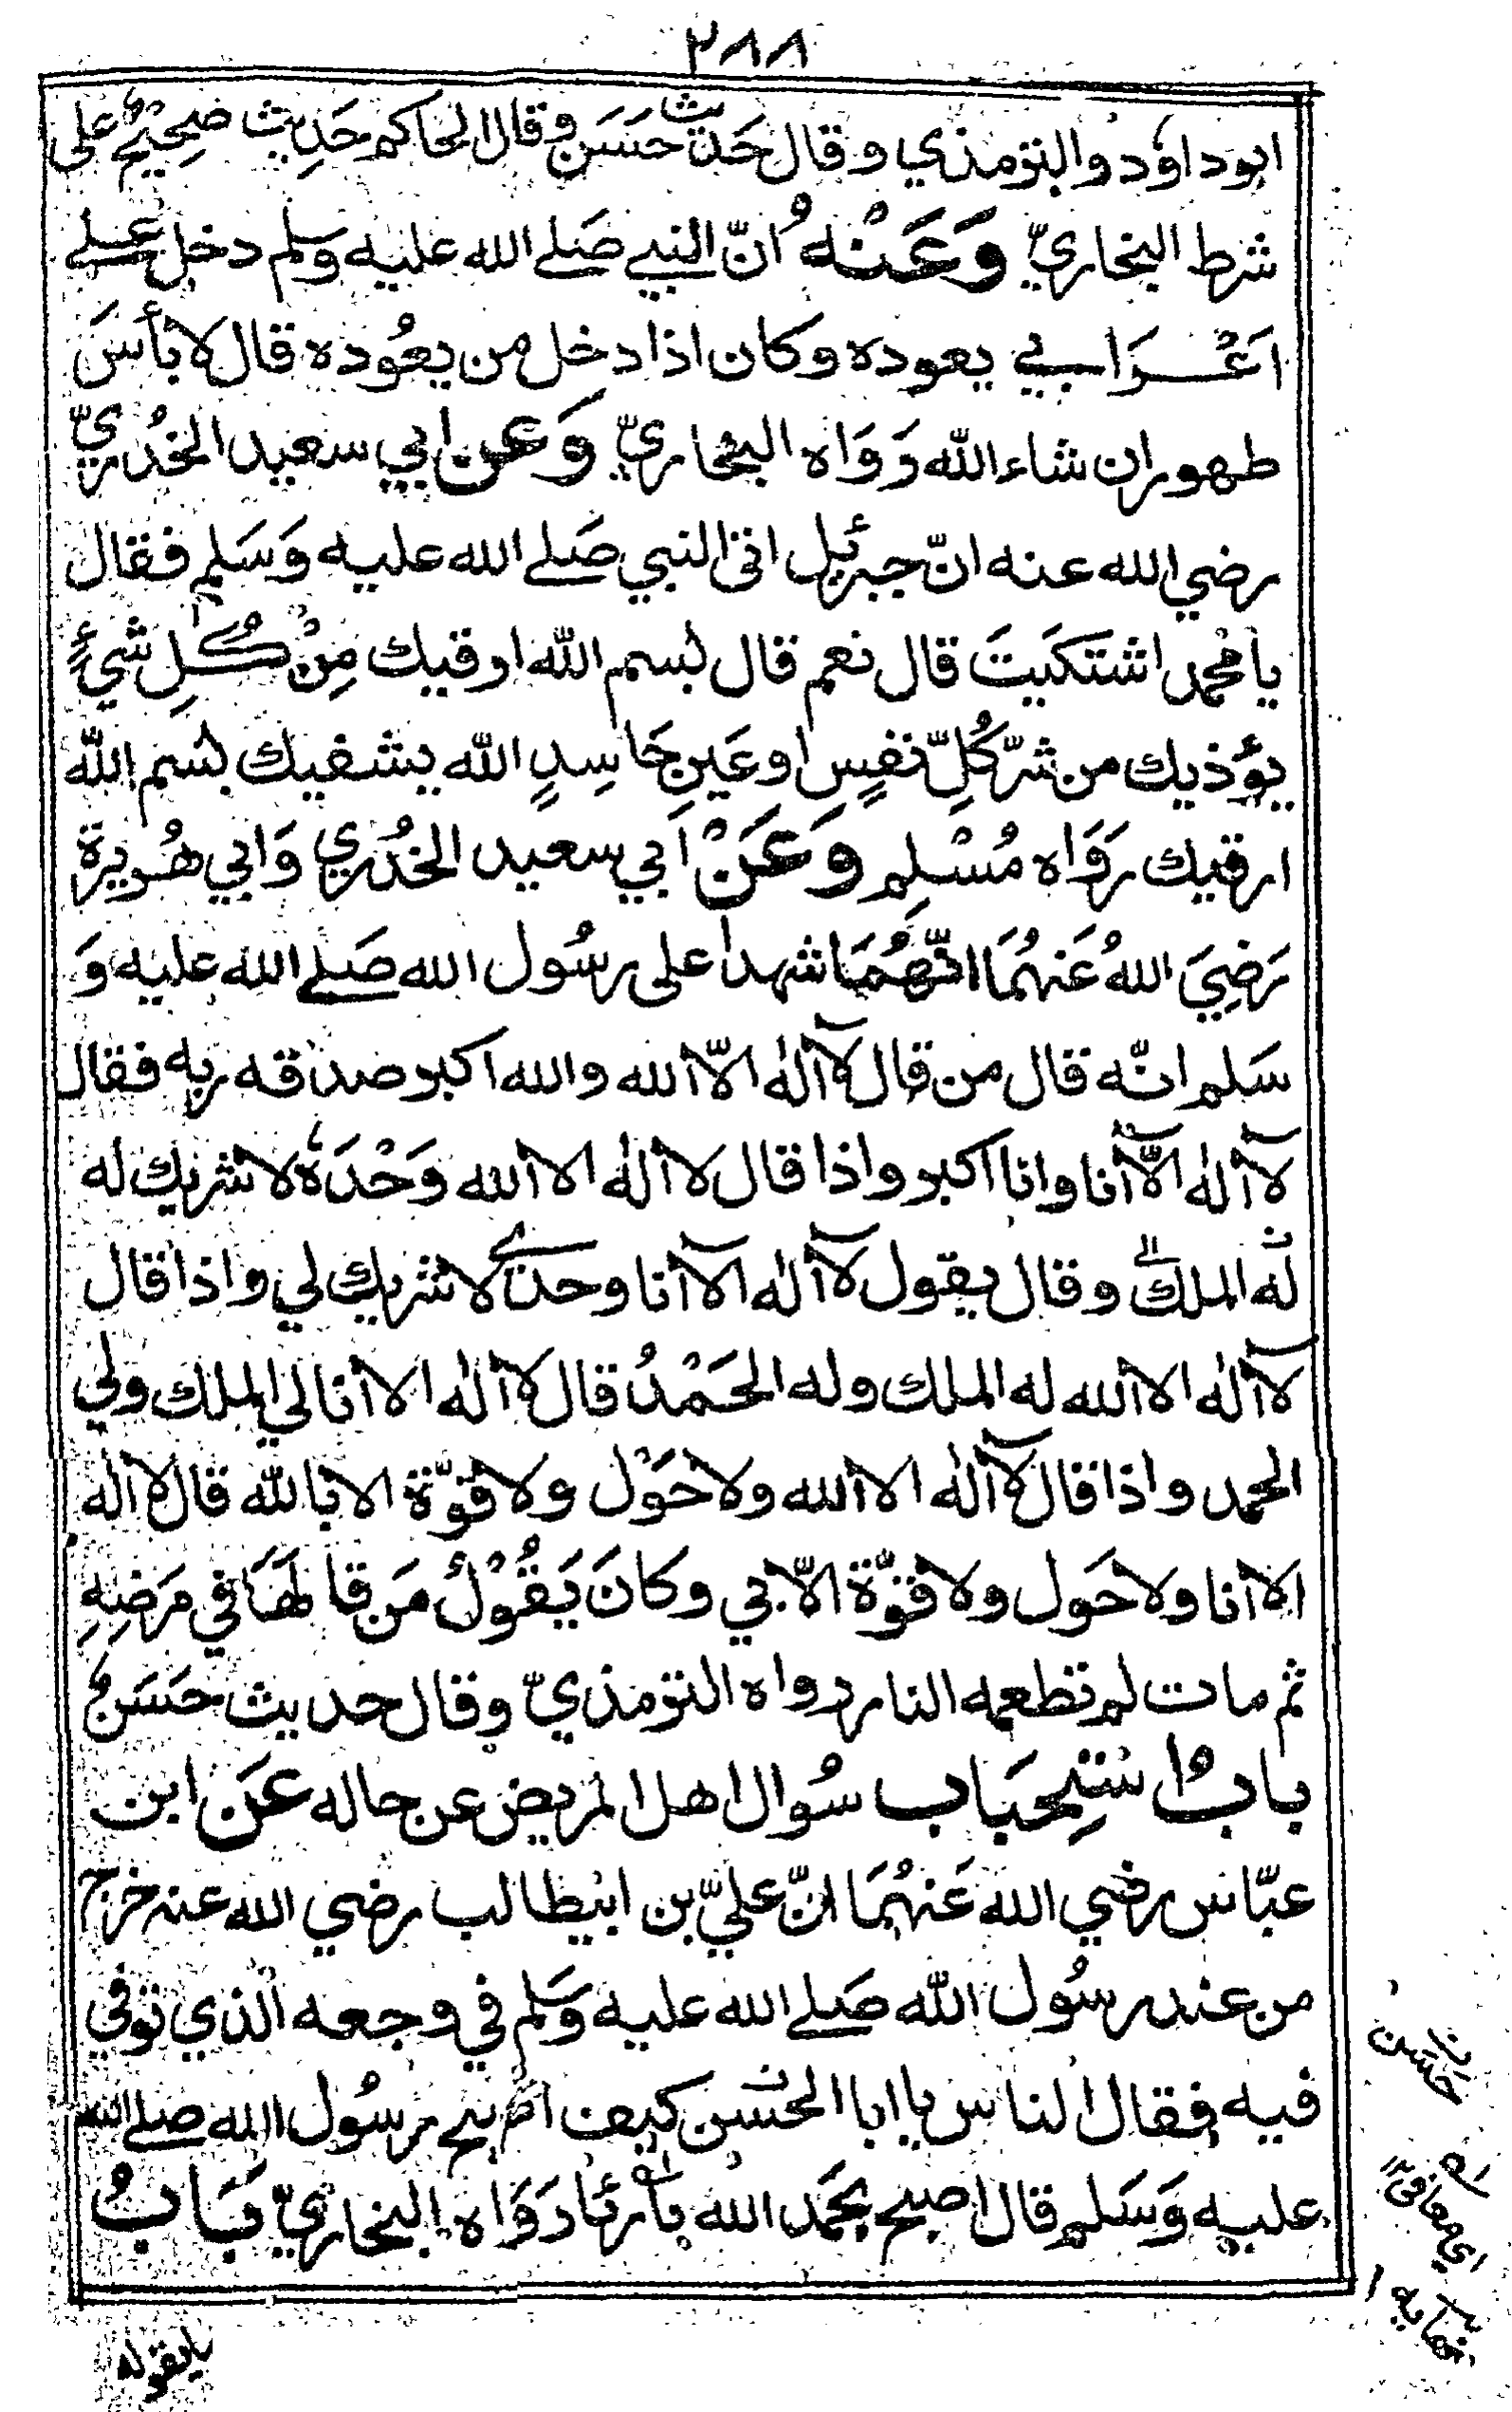 ٢٨٨
ابوداؤد والترمذي وقال حَديث حَسَن وقال الحاكم حَدِيث صَحِيْحٌ على
شرط البخاريّ وَعَنْهُ انّ النبي صَلے الله عليه وسلم دخل علے
اَعْرَابي يعوده وكان اذا دخل من يعُوده قال لا بأسَ
طهور ان شاء الله رَوَاه البخاريّ وَعن ابي سعيد الخُدْريّ
رضي الله عنه انّ جبرئيل اتى النبي صَلے الله عليه وَسَلم فقال
يا محمد اشتكَيتَ قال نعم قال بسم الله اوقيك مِنْ كُلِ شيءٍ
يؤذيك من شرّ كُلِّ نفسٍ او عَينِ حَاسِدٍ الله يشفيك بسم الله
ارقيك رَوَاه مُسْلم وَعَنْ اَبي سعيد الخُدْري وَابي هُريرة
رَضِيَ اللهُ عَنهُمَا انّهُمَا شهدا على رسُول الله صَلے الله عليه وَ
سَلم انّه قال من قال لآ آلٰه الّا الله والله اكبر صدقه ربه فقال
لآ آلٰه الّا آنا وانا اكبر واذا قال لا آلٰه الا الله وَحْدَهٗ لا شريك له
له الملك وقال يقول لآ آلٰه الا آنا وحدے لا شريك لي واذا قال
لآ آلٰه الا الله له الملك وله الحَمْدُ قال لا آلٰه الا انا لي الملك ولي
الحمد واذا قال لآ آلٰه الا الله ولا حَوْل ولا قوّة الا بالله قال لا اله
الا انا ولا حَول ولا قوّة الّا بي وكانَ يَقُوْلُ مَن قالهَا في مَرَضِهِ
ثم مات لم تطعمه النار رواه الترمذيّ وقال حديث حَسَنٌ
بابُ استِحبَاب سُوال اهل المريض عن حاله عَن ابن
عبّاس رضي الله عَنهُمَا انّ عليّ بن ابيطالب رضي الله عنه خرج
من عند رسُول الله صَلے الله عليه وَسَلم في وجعه الذي توفي
فيه فقال الناس يا ابا الحسن كيف اصبح رسُول الله صلے الله
عليه وَسَلم قال اصبح بحَمد الله بارئا رَوَاه البخاريّ بَابُ
حسن
اي معافى
نهايه
مايقوله